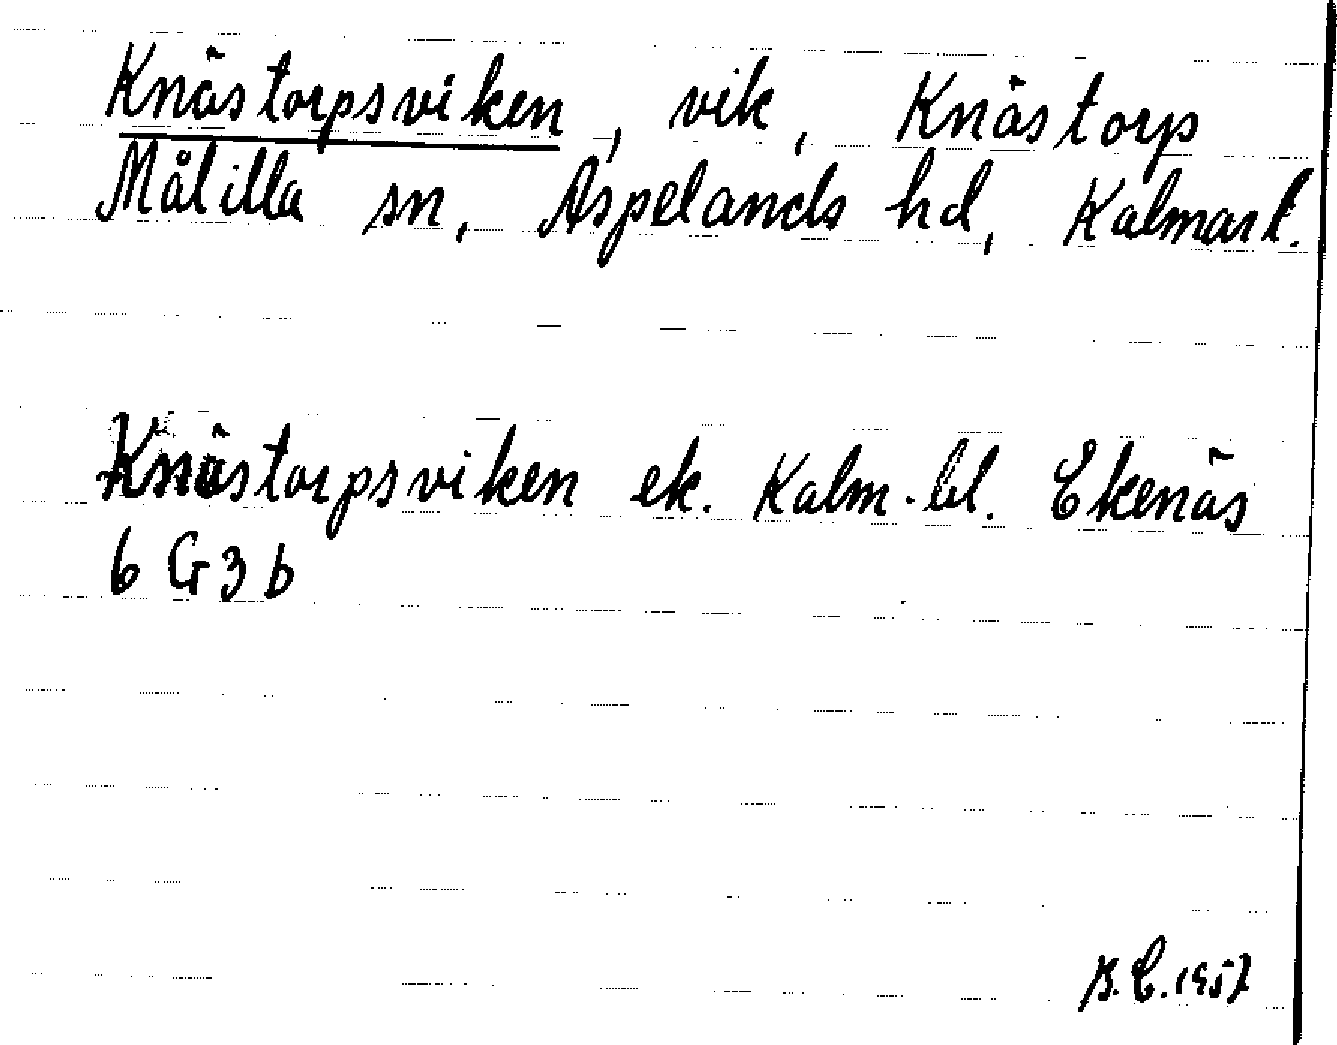 Knästorpsviken, vik, Knästorp
Målilla sn, Aspelands hd, Kalmarl.
Knästorpsviken ek. Kalm-bl. Ekenäs
6 G 3 b
B.C. 1957